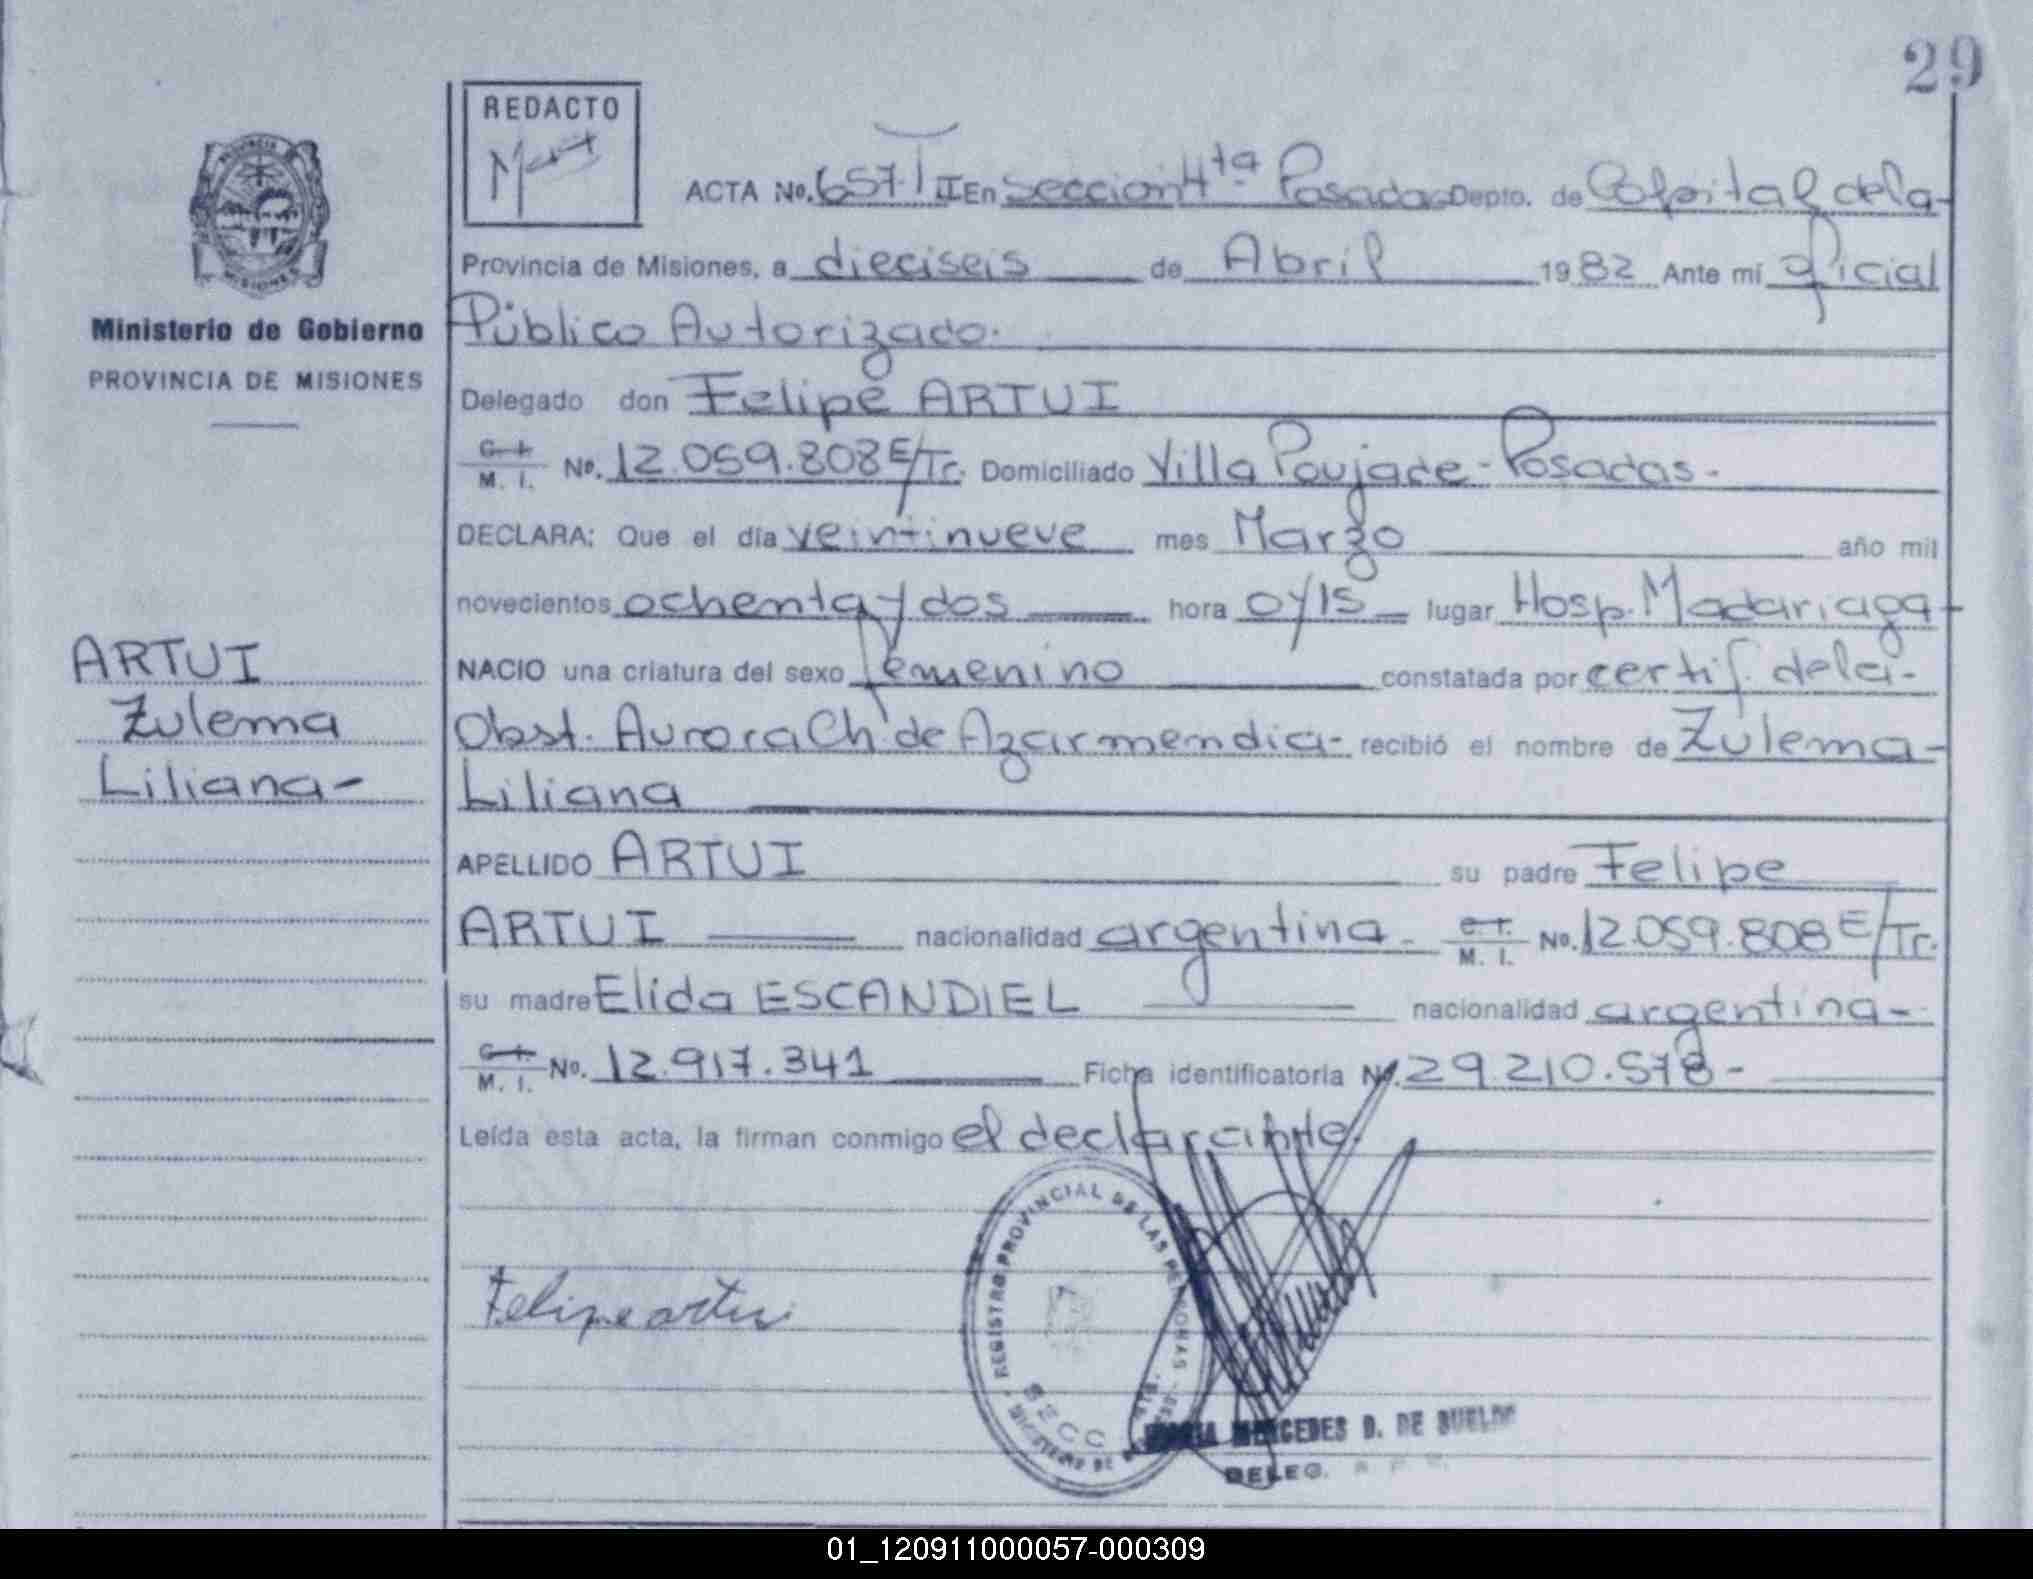 29
REDACTO
ACTA No. 657. T II En Sección 4ta. Posadas Depto. de Capital de la-
Provincia de Misiones, a dieciseis de Abril 1982 Ante mí oficial
Público Autorizado.
Delegado don Felipe ARTUI
C. I. M. I. No. 12.059.808 E/Tr. Domiciliado Villa Poujade - Posadas.
DECLARA: Que el día veintinueve mes Marzo año mil
novecientos ochenta y dos hora 0 y 15 lugar Hosp. Madariaga-
NACIO una criatura del sexo femenino constatada por certif. de la-
Obst. Aurora Ch de Azarmendia- recibió el nombre de Zulema-
Liliana
APELLIDO ARTUI su padre Felipe
ARTUI nacionalidad argentina- C. I. M. I. No. 12.059.808 E/Tr.
su madre Elida ESCANDIEL nacionalidad argentina-
C. I. M. I. No. 12.917.341 Ficha identificatoria No. 29.210.578-
Leída esta acta, la firman conmigo el declarante.
PROVINCIA
MISIONES
Ministerio de Gobierno
PROVINCIA DE MISIONES
ARTUI
Zulema
Liliana-
Felipe artui
REGISTRO PROVINCIAL DE LAS PERSONAS
SECC
MINISTERIO DE
MERCEDES D. DE SUELDO
DELEG.
01_120911000057-000309